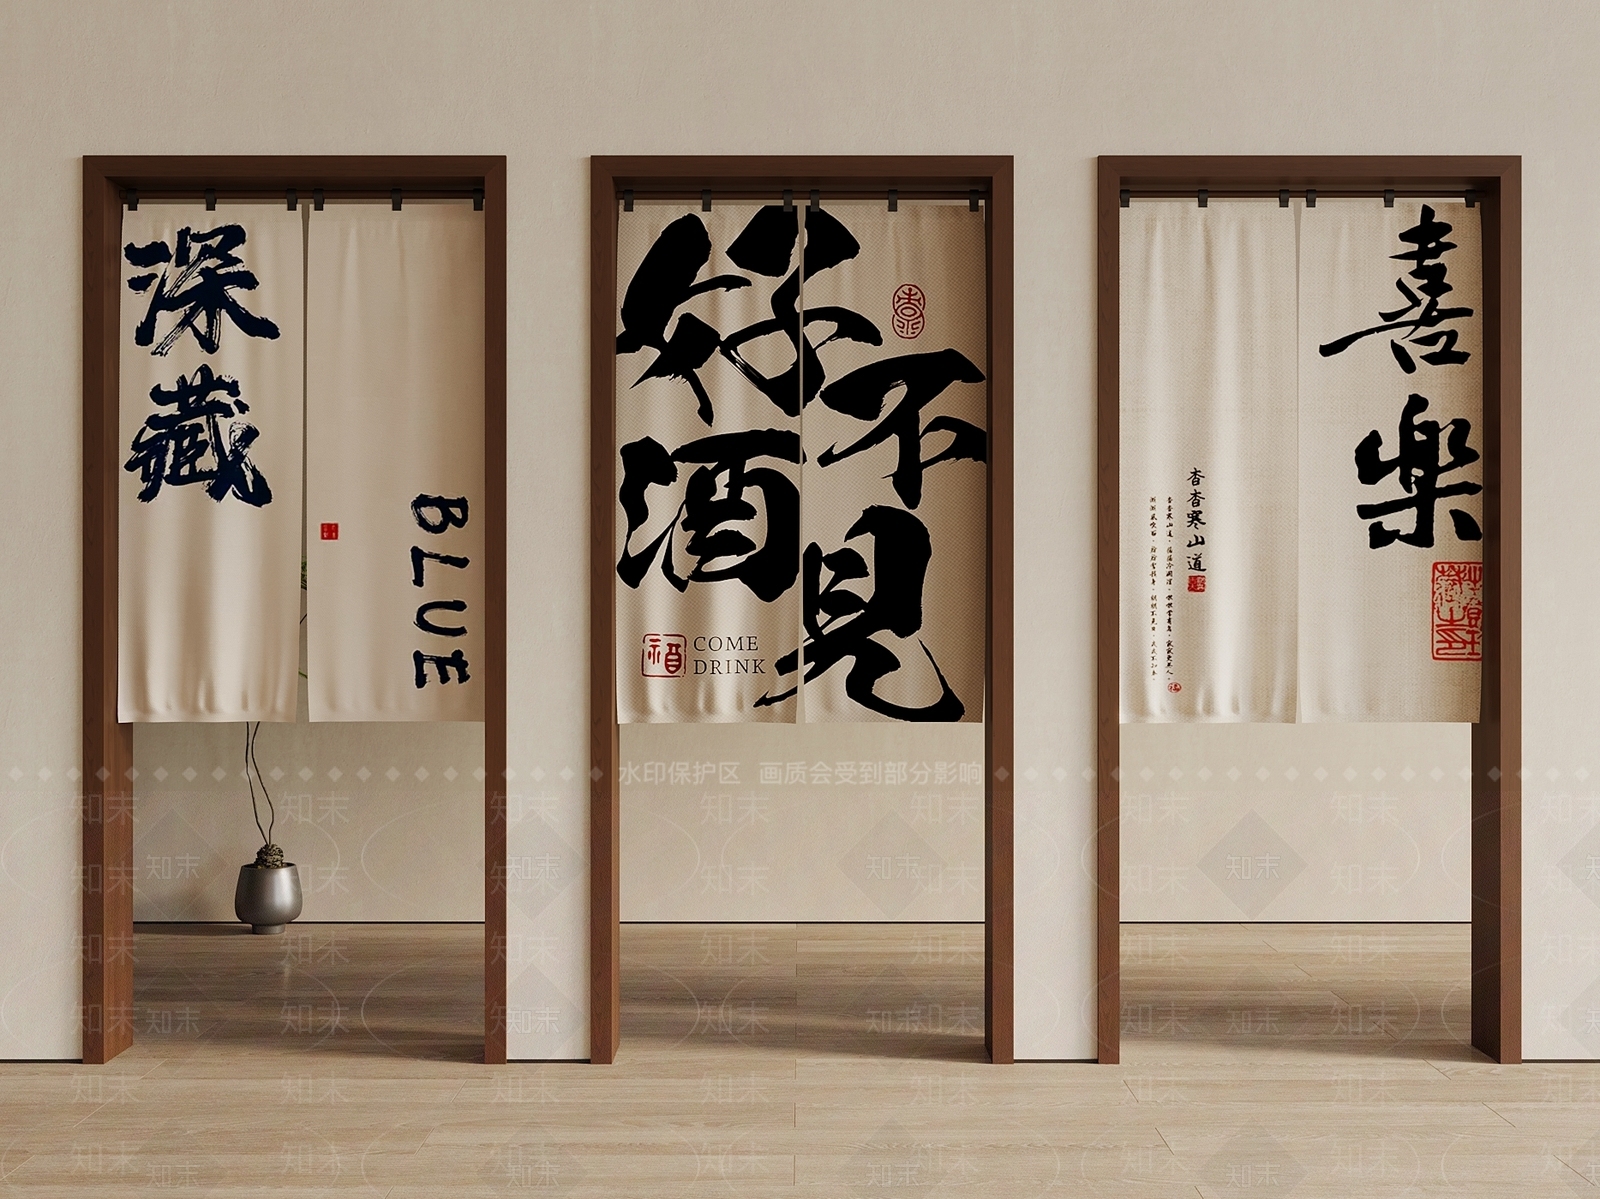 深藏
BLUE
好酒
不見
COME
DRINK
喜樂
杳杳寒山道
水印保护区 画质会受到部分影响
知末